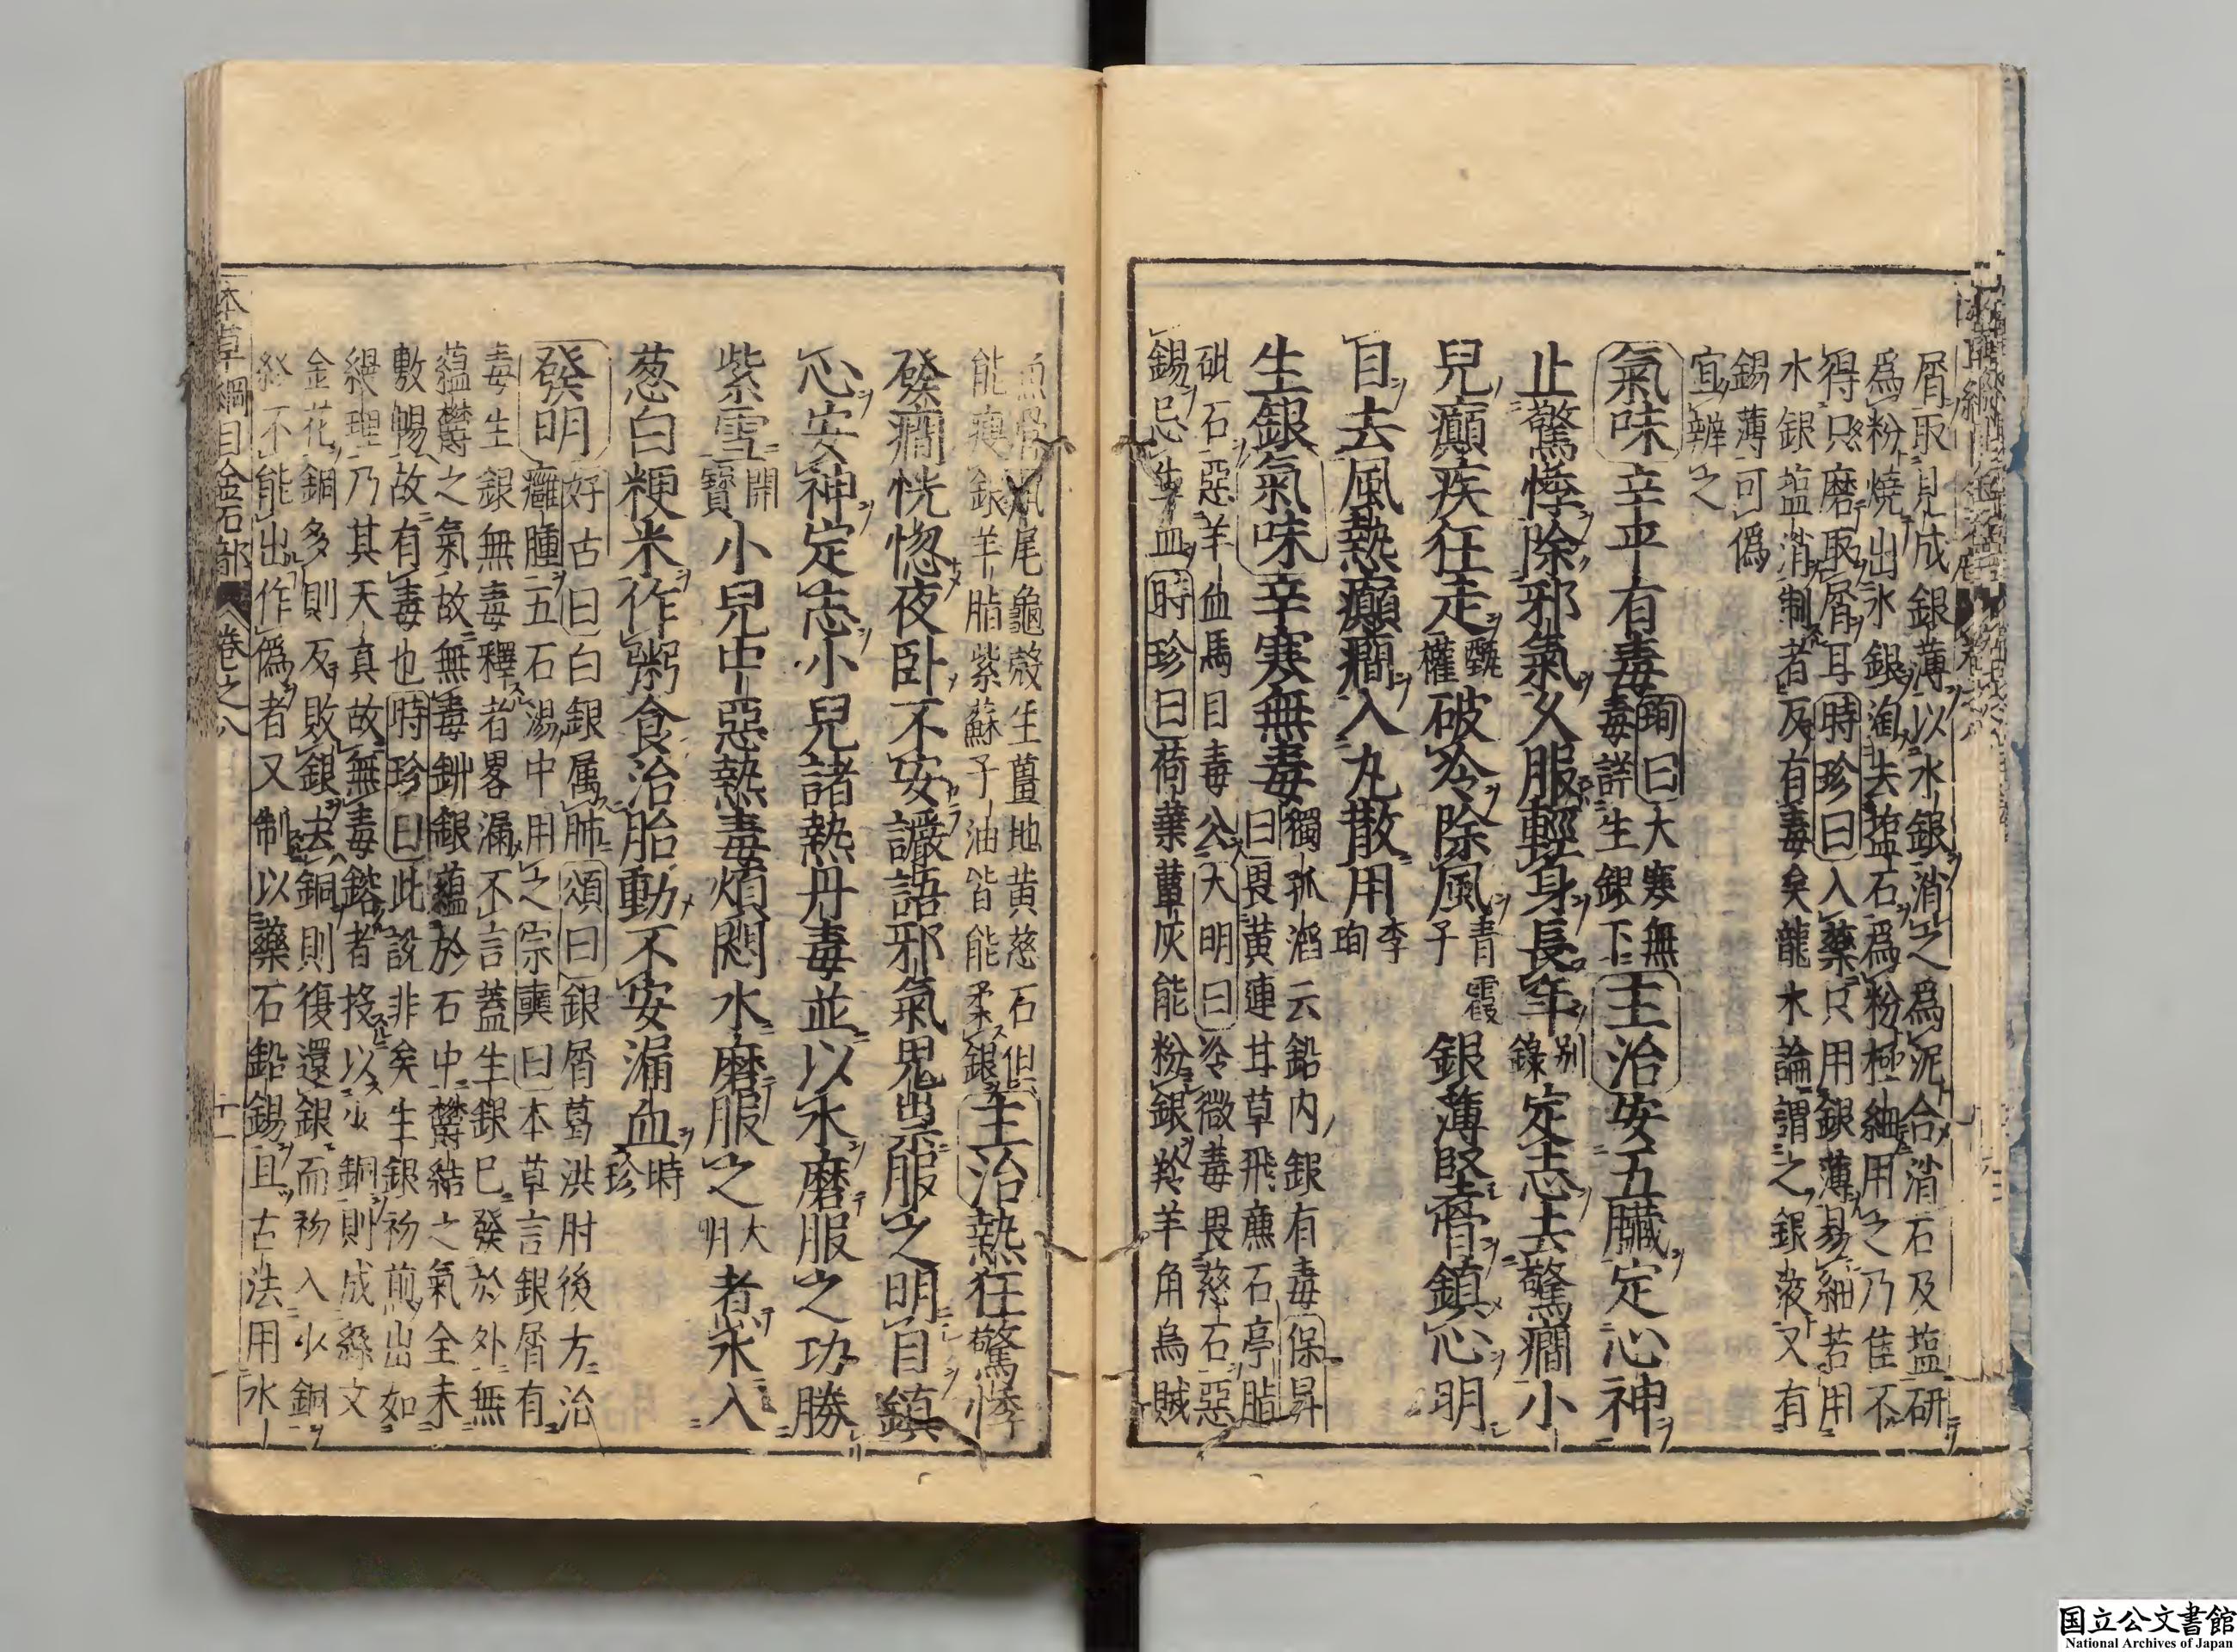 屑取見成銀薄以水銀消之爲泥合消石及塩研
爲粉燒出水銀淘去塩石爲粉極細用之乃佳不
得只磨取屑耳時珍曰入藥只用銀薄易細若用
水銀塩消制者反有毒矣龍木論謂之銀液又有
錫薄可偽
宜辨之
氣味辛平有毒珣曰大寒無
毒詳生銀下主治安五臟定心神
止驚悸除邪氣久服輕身長年别
錄定志去驚癇小
兒癲疾狂走甄
權破冷除風青霞
子銀薄堅骨鎮心明
目去風熱癲癇入丸散用李
珣
生銀氣味辛寒無毒獨孤滔云鉛内銀有毒保昇
曰畏黃連甘草飛廉石亭脂
砒石惡羊血馬目毒公大明曰冷微毒畏慈石惡
錫忌生血時珍曰荷葉蕈灰能粉銀羚羊角烏賊
魚骨鼠尾龜殻生薑地黄慈石俱
能瘦銀羊脂紫蘇子油皆能柔銀主治熱狂驚悸
發癇恍惚夜卧不安讝語邪氣鬼祟服之明目鎮
心安神定志小兒諸熱丹毒並以水磨服之功勝
紫雪開
寶小兒中惡熱毒煩悶水磨服之大
明煮水入
葱白粳米作粥食治胎動不安漏血時
珍
發明好古曰白銀属肺頌曰銀屑葛洪肘後方治
癰腫五石湯中用之宗奭曰本草言銀屑有
毒生銀無毒釋者畧漏不言蓋生銀已發於外無
蘊欝之氣故無毒鉚銀蘊於石中欝結之氣全未
敷暢故有毒也時珍曰此說非矣生銀初煎出如
縵理乃其天真故無毒鎔者投以少銅則成絲文
金花銅多則反敗銀去銅則復還銀而初入少銅
終不能出作偽者又制以藥石鉛錫且古法用水
本草綱目金石部 卷之八 十一
国立公文書館
National Archives of Japan